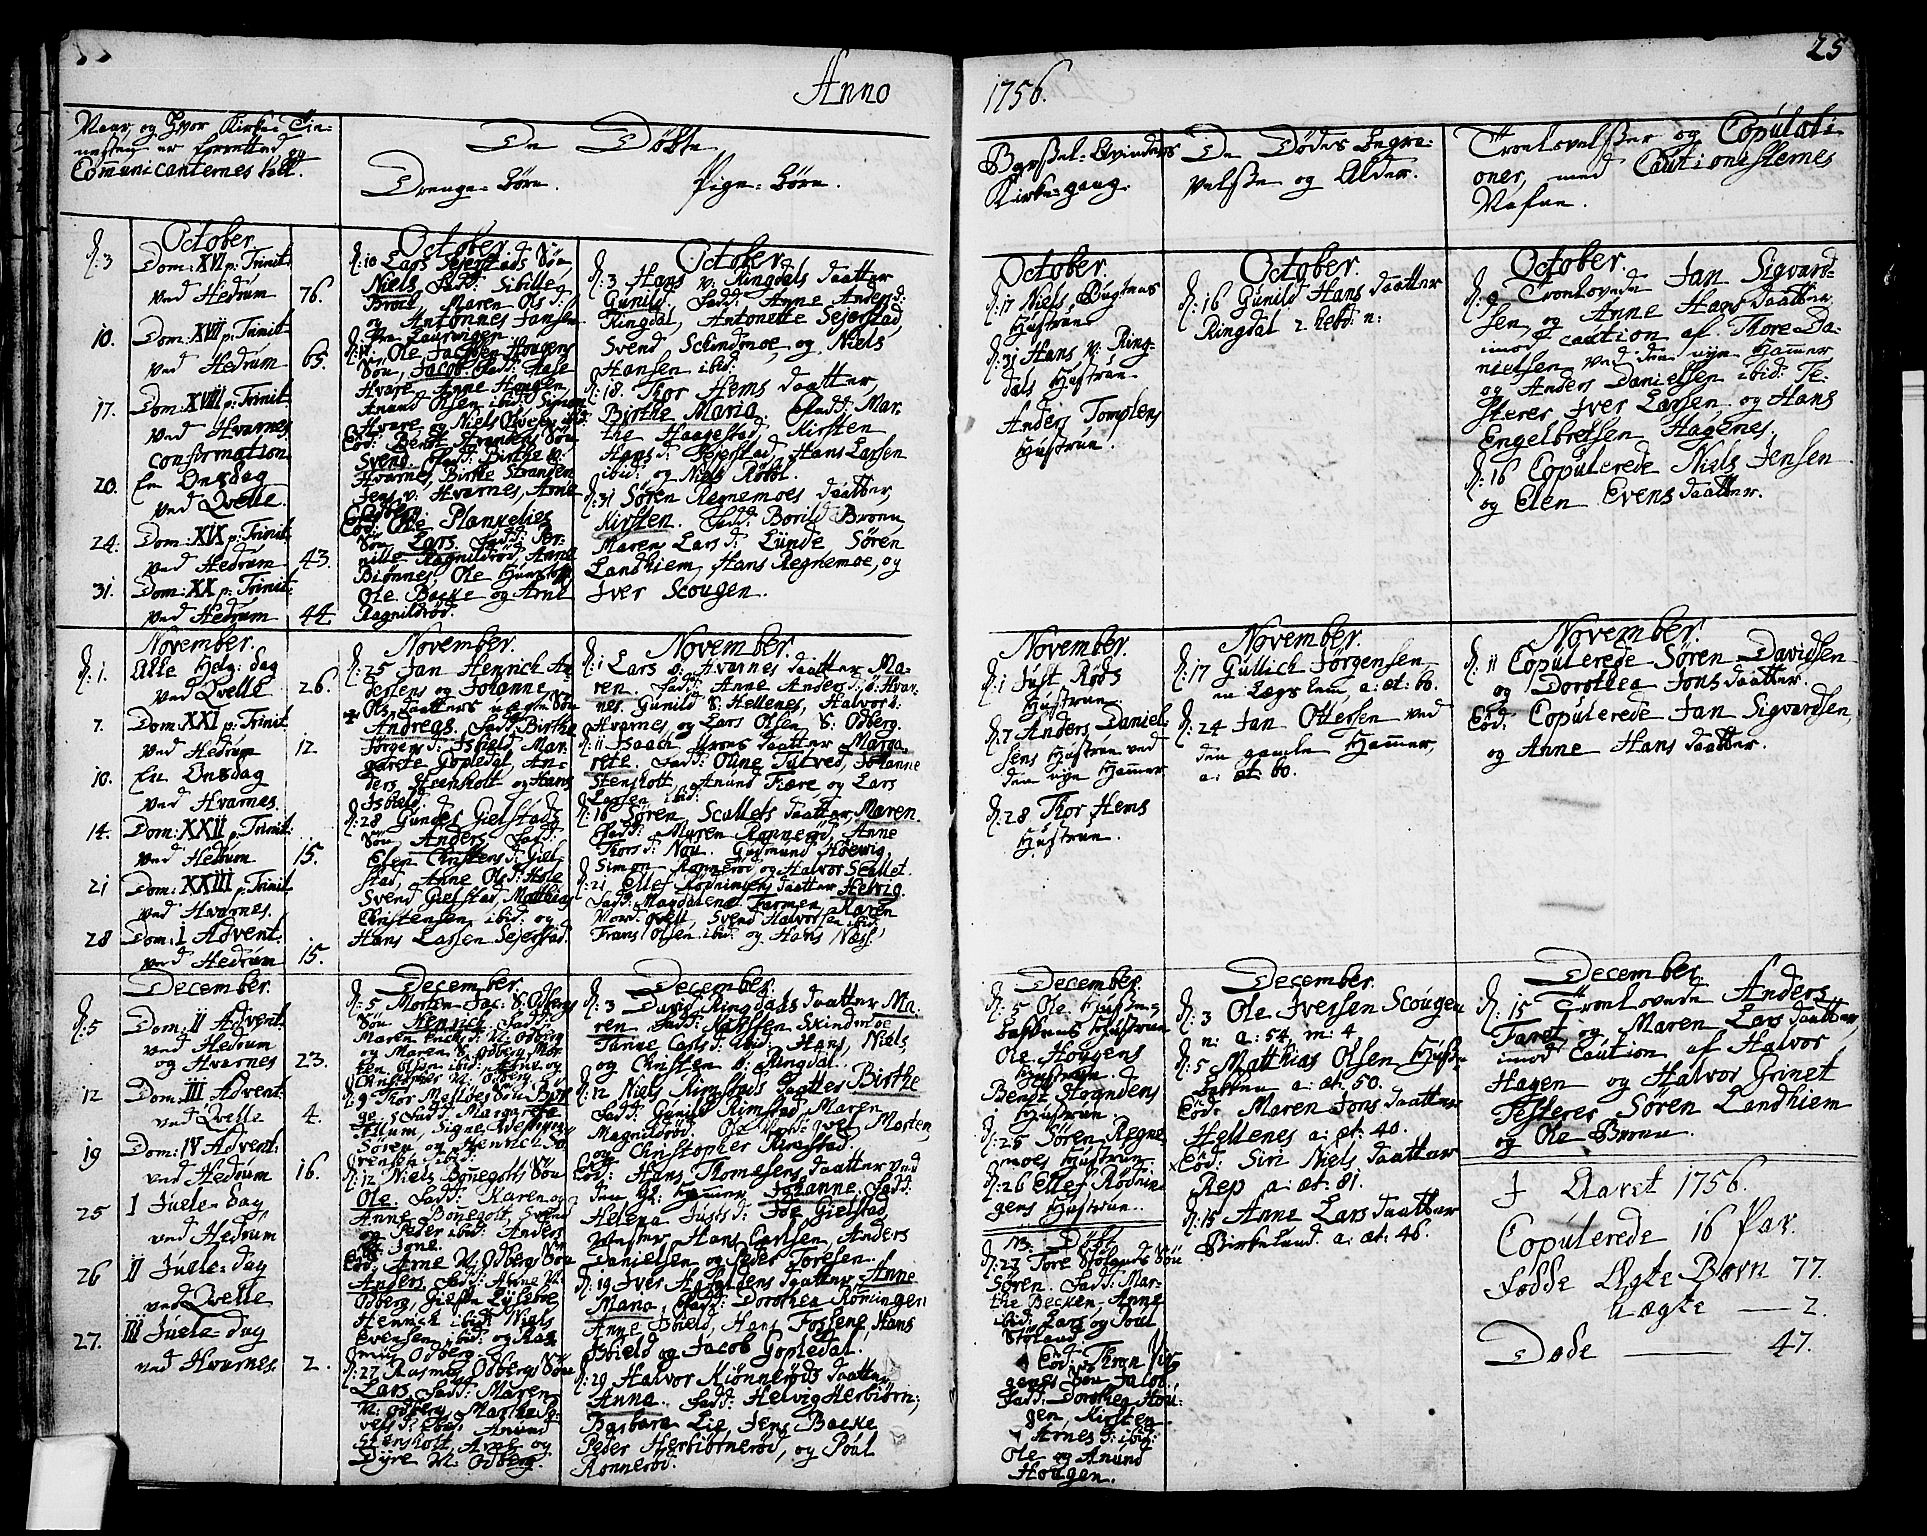 Anno
1756.
25
Naar, og Hvor Kirke-Tie-
nesten er forretted og
Comunicanternes tall.
De Døbte
Drenge-Børn.
Pige-Børn.
Barsel-Qvinders
Kirke-gang.
De Dødes Begra-
velsse og Alder.
Troelovelsser og Copulati-
oner, med Cautionisternes
Nafne.
October.
d: 3 Dom: XVI p: Trinit:
ved Hedrum 76.
10. Dom: XVII p: Trinit:
ved Hedrum 65.
17. Dom: XVIII p: Trinit:
ved Hvarnes
confirmation
20. En Onsdag
ved Qvelle.
24. Dom: XIX p: Trinit:
ved Hedrum 43.
31. Dom: XX p: Trinit:
ved Hedrum 44.
October.
d: 10 Lars Sejerstads Søn
Niels. Fadd: Sibille
Broel, Maren Ols d:
og Antonnes Jansen
Søn, Jacob. Fadd: Aase
Hvare, Anne Hougen,
Anund Olsen ibid: Signe
Hvare, og Niels Olssen ibid:
Eod: Bendt Strandens Søn
Svend. Fadd: Birthe v:
Hvarnes, Birthe Stranden
Jens v: Hvarnes, Arne
Eod: Ole Plankelies
Søn Lars. Fadd: Per-
nille Ragnildrød, Anne
Biønnes, Ole
Ole Bække og Arne
Ragnildrød.
October.
d: 3 Hans v: Ringdals daatter
Gunild. Fadd: Anne Anders d:
Ringdal, Antonette Sejerstad,
Svend Schindmoe, og Niels
Hansen ibid:
d: 18. Thor Hems daatter,
Birthe Maria. Fadd: Mar-
the Haagestad, Kirsten
Hans d: Sejerstad, Hans Larsen
ibid: og Niels Røbøl.
d: 31 Søren Regnemoes daatter,
Kirsten. Fadd: Borild Bronn,
Maren Lars d: Lunde Søren
Landhiem, Hans Regnemoe, og
Iver Scougen.
October.
d: 17 Niels Bugtens
Hustrue
d: 31 Hans v: Ring-
dals Hustrue
Anders Tomplens
Hustrue.
October.
d: 16 Gunild Hans daatter
Ringdal 2 hebd: n:
October.
d: 9 Troelovede Jan Sigvard-
sen og Anne Hans daatter,
imod caution af Thore Da-
nielsen ved den nye Hammer
og Anders Danielsen ibid: Te-
sterer Iver Larsen og Hans
Engelbretsen Hagenes.
d: 16 Copulerede Niels Jensen
og Elen Evens daatter.
November.
d: 1. Alle Helg: dag
ved Qvelle 26.
7. Dom: XXI p: Trinit:
ved Hedrum 12.
10. En Onsdag
ved Hvarnes.
14. Dom: XXII p: Trinit:
ved Hedrum 15.
21 Dom: XXIII p: Trinit
ved Hvarnes.
28 Dom: I Advent:
ved Hedrum 15.
November.
d: 25 Jan Henrich An-
dersens og Johanne
Ols daatters uægte Søn
Andreas. Fadd: Birthe
Jørgens d: Isbield, Mar-
garete Gopledal, An-
ders Steenholt og Hans
Isbield.
d: 28 Gundes Gielstads
Søn Anders. Fadd:
Elen Christens d: Giel-
stad, Anne Ols d: Hole
Svend Gielstad, Matthias
Christensen ibid: og
Hans Lassen Sejerstad.
November.
d: 1 Lars ø: Hvarnes daatter Ma-
ren. Fadd: Anne Anders d: ø: Hvar-
nes. Gunild S: Hellenes, Halvor ø:
Hvarnes og Lars Olsen S: Odberg.
d: 11 Isaach Mørens daatter Marga-
rete. Fadd: Oline Tutved, Johanne
Stensholt, Anund Fiære og Lars
Larsen ibid:
d: 16 Søren Scallets daatter Maren.
Fadd: Maren Ronnerød, Anne
Thors d: Nou. Gudmund Hoevig,
Simon Ronnerød og Halvor Scallet.
d: 21 Ellef Rødningens daatter Helvig.
Fadd: Magdalena Farmen, Karen
Nord: Qvell, Svend Halvorsen ibid:
Frans Olsen ibid: og Hans Næss.
November.
d: 1 Just Røds
Hustrue
d: 7 Anders Daniel-
sens Hustrue ved
den nye Hammer
d: 28 Thor Hems
Hustrue.
November.
d: 17 Gullich Jørgensen
en Lægs lem, a: æt: 60.
d: 24 Jan Ottersen ved
den gamle Hammer,
a: æt: 60.
November.
d: 11 Copulerede Søren Davidsen
og Dorothea Jons daatter.
Eod: Copulerede Jan Sigvardsen,
og Anne Hans daatter.
December.
d: 5 Dom: II Advent:
ved Hedrum
og Hvarnes 23.
12 Dom: III Advent:
ved Qvelle 4.
19 Dom: IV Advent:
ved Hedrum 16.
25 I Juele-dag
ved Hedrum
26 II Juele-dag
ved Qvelle
27. III Juele-dag
ved Hvarnes 2.
December.
d: 5 Morten Jac: S: Odbergs
Søn Henrich. Fadd:
Maren Erichs d: N: Odberg
og Maren S: Odberg Mor-
ten Olsen ibid: Arne og
Christopher N: Odberg.
d: 9 Thor Melløes Søn Bør-
ge. Fadd: Margarete
Allum, Signe
Søren og Henrich
Svensken ibid:
d: 12 Niels Bonegolts Søn
Ole. Fadd: Karen og
Anne Bonegolt, Svend
og Peder ibid: Anders
Eod: Arne N: Odbergs Søn
Anders. Fadd: Anne N:
Odberg, Giertru Lysebroe
Henrich ibid: Niels
Evensen ibid: og Ras-
mus Odberg.
d: 27 Rasmus Odbergs Søn
Lars. Fadd: Maren
N: Odberg, Marthe
Eod: Anund
Stensholt, Arne og
Dyre N: Odberg.
December.
d: 3 David Ringdals daatter Ma-
ren. Fadd: Karssen Skindmoe
Tanne Carls d: ibid: Hans, Niels,
og Christen v: Ringdal.
d: 12 Niels Rimstads daatter Birthe
Fadd: Gunild Rimstad, Maren
Magnildrød, Ole Nord: qvel Morten,
og Christopher Rimstad.
Eod: Hans Thomesens daatter ved
den gl: Hammer Johanne. Fadd:
Helena Justs d: Ide Gielstad,
Hans Carlsen, Anders
Danielsen og Peder Toresen.
d: 19 Iver Aspeldens daatter Anne
Maria. Fadd: Dorothea Romingen
Anne Isbield, Hans Fossene, Hans
Isbield og Jacob Gopledal.
d: 29 Halvor Kiønnerøds daatter
Anna. Fadd: Helvig Herbiørn:
Barbara Lie, Jens Bække,
Peder Herbiørnerød, og Poul
Ronnerød.
December.
d: 5 Ole Hussen-
bastens Hustrue
Ole Hougens
Hustrue.
Bendt Strandens
Hustrue.
d: 25 Søren Regne-
moes Hustrue
d: 26 Ellef Rødnin-
gens Hustrue.
NB. Døbt
d: 27 Tore Stølands Søn
Søren. Fadd: Mar-
the Becken, Anne
ibid: Lars og Poul
Støland
Eod: Thron
genes Søn Jacob.
Fadd: Dorothea Hou-
gen, Kirsten
Arnes d: ibid:
Ole og Anund
Hougen.
December.
d: 3 Ole Iverssen Scougen
n: a: 54, m: 4
d: 5 Matthias Olsen
a: æt: 50.
Eod: Maren Jons daatter
Hellenes a: æt: 40.
Eod: Siri Niels daatter
Rep a: æt: 81.
d: 15 Anne Lars daatter
Birkelund. a: æt: 46.
December.
d: 15 Troelovede Anders
Faret og Maren Lars daatter,
imod Caution af Halvor
Hagen og Halvor Grinet
Testerer Søren Landhiem
og Ole Bronn.
I Aaret 1756.
Copulerede 16 Par.
Fødde Ægte Børn 77.
Uægte — 2.
Døde — 47.